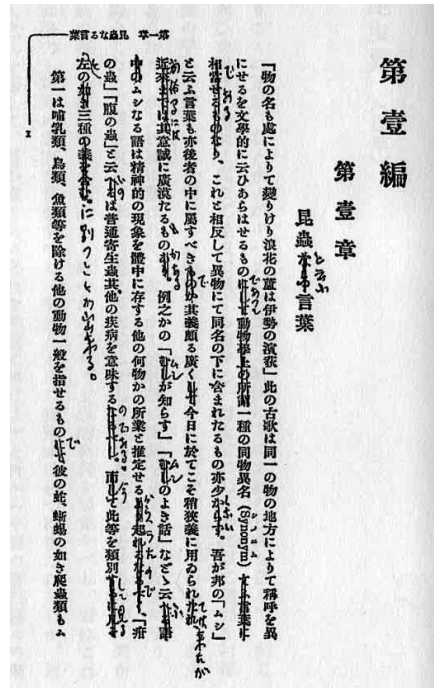 第一章 昆蟲なる言葉
一
第壹編
第壹章
昆蟲 と云ふ 言葉
「物の名も處によりて變りけり浪花の蘆は伊勢の濱荻」此の古歌は同一の物の地方によりて稱呼を異
にせるを文學的に云ひあらはせるものにして動物學上の所謂一種の同物異名 (Synonym) なる言葉に
相當せるものなり、これと相反して異物にて同名の下に含まれたるもの亦少からず。吾が邦の「ムシ」
と云ふ言葉も亦後者の中に屬すべきものが其義頗る廣くして今日に於てこそ稍狹義に用ゐられたれ
近來までは其意誠に廣漠たるものあり。例之かの「むしが知らす」「むしのよき話」などゝ云へる語
中のムシなる語は精神的の現象を體中に存する他の何物かの所業と推定せるより起れるなるべく、「疳
の蟲」「腹の蟲」と云へるは普通寄生蟲其他の疾病を意味するなるべし。而して此等を類別
左の如き三種の義を含む。に別つことが出來る。
第一は哺乳類、鳥類、魚類等を除ける他の動物一般を指せるものにして彼の蛇、蜥蜴の如き爬蟲類も